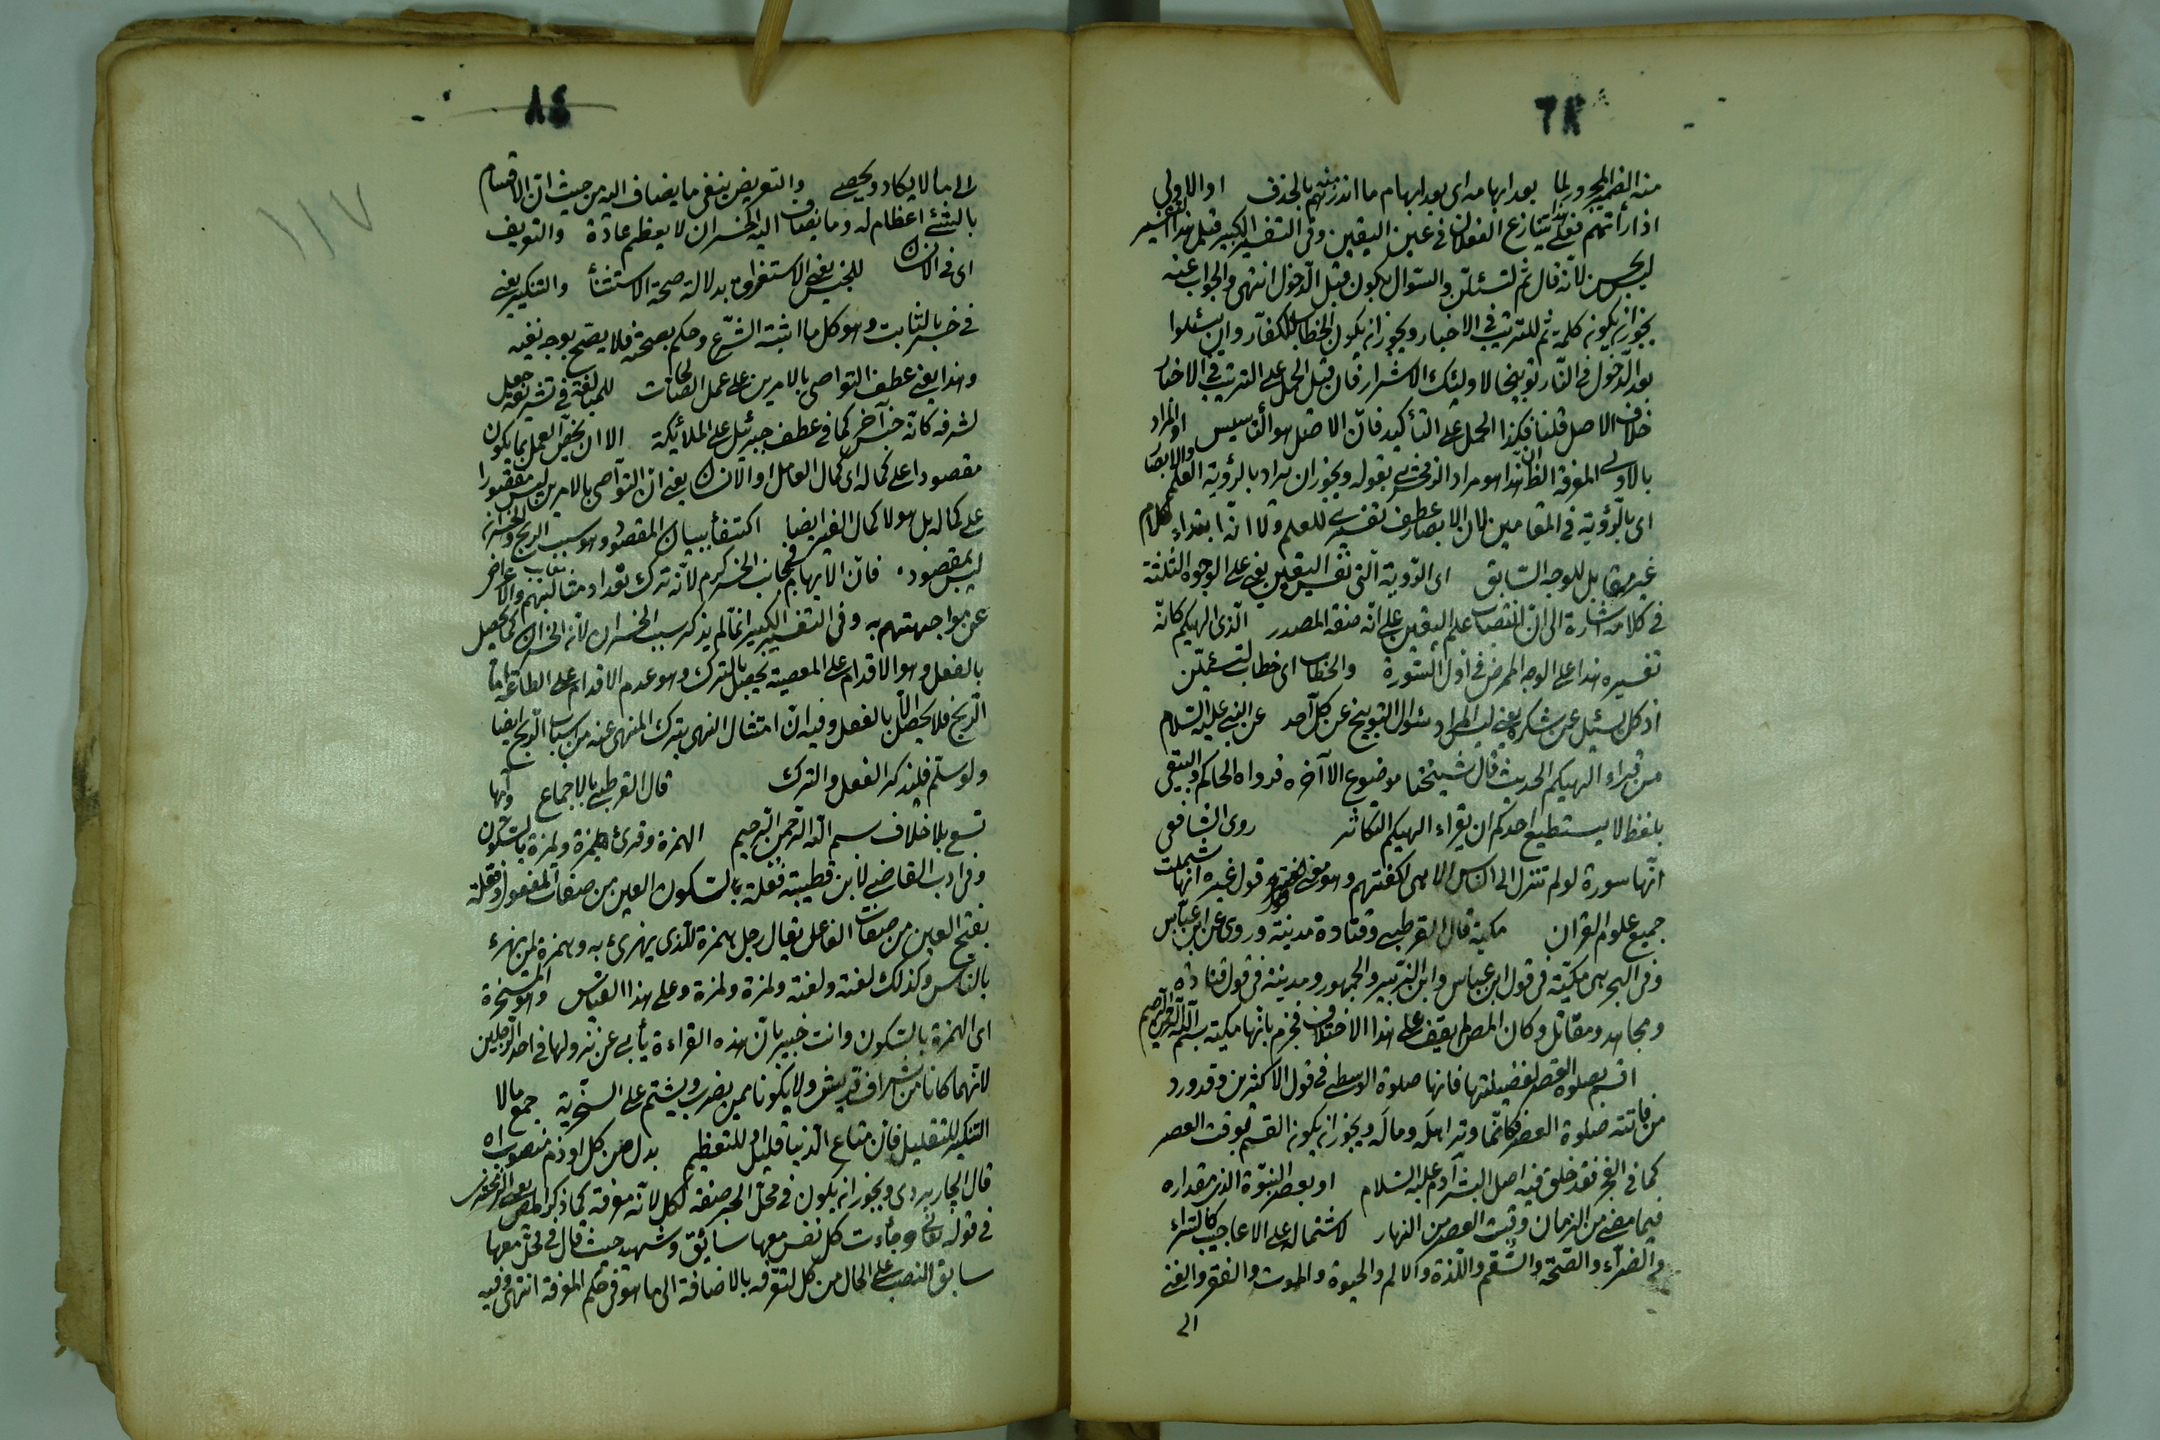 منه الضم المجرور لما بعد ابهامه اى بعد ابهام ما انذرتهم منه بالحذف او الاولى
اذا رأتهم فعلى هذا يتنازع الفعلان فى عين اليقين وفى التفسير الكبير قيل هذا التفسير
ليس بحسن لانه قال ثم لتسئلن والسؤال يكون قبل الدخول انتهى والجواب عنه
يجوز ان يكون كلمة ثم للترتيب فى الاخبار ويجوز ان يكون الخطاب للكفار وان يسئلوا
بعد الدخول فى النار توبيخا لاولئك الاشرار فان قيل الحمل على الترتيب فى الاخبار
خلاف الاصل قلنا فكذا الحمل على التأكيد فان الاصل هو التأسيس او المراد
بالاولى المعرفة الظ ان هذا هو مراد الزمخشرى بقوله ويجوز ان يراد بالرؤية العلم والابصار
اى بالرؤية فى المقامين لان الابصار عطف تفسيرى للعلم ولا انه ابتداء كلام
غير مقابل للوجه السابق اى الرؤية التى نفس اليقين يعنى على الوجوه الثلثة
فى كلامه اشارة الى ان انتصاب علم اليقين على انه صفة المصدر الذى الهيكم كانه
تفسيره هذا على الوجه المرضى فى اول السورة والخطاب اى خطاب لتسئلن
اذ كل يسئل عن شكره يعنى ليس المراد سئوال التوبيخ عن كل احد عن النبى عليه السلام
من قراء الهيكم الحديث قال شيخنا موضوع الا آخره فرواه الحاكم والبيهقى
بلفظ لا يستطيع احدكم ان يقراء الهيكم التكاثر روى الشافعى
انها سورة لو لم تنزل الى الناس الا هى لكفتهم وهو معنى قول غيره انها شملت
جميع علوم القران مكية قال القرطبى وقتادة مدنية وروى عن ابن عباس
وفى البحر هى مكية فى قول ابن عباس وابن الزبير والجمهور ومدنية فى قول قتاده
ومجاهد ومقاتل وكان المص لم يقف على هذا الاختلاف فجزم بانها مكية بسم الله الرحمن الرحيم
اقسم بصلوة العصر لفضيلتها فانها صلوة الوسطى فى قول الاكثرين وقد ورد
من فاتته صلوة العصر فكانما وتر اهله وماله ويجوز ان يكون القسم بوقت العصر
كما فى الفجر فقد خلق فيه اصل البشر آدم عليه السلام او بعصر النبوة الذى مقداره
فيما مضى من الزمان وقت العصر من النهار لاشتماله على الاعاجيب كالسراء
والضراء والصحة والسقم واللذة والالم والحيوة والموت والفقر والغنى
الى
٨٤
١١٧
الى ما لا يكاد ويحصى والتعريض بنفى ما يضاف اليه من حيث ان الاقسام
بالشئ اعظام له وما يضاف اليه الخسران لا يعظم عادة والتعريف
اى فى الانسان للجنس يعنى الاستغراق بدلالة صحة الاستثنأ والتنكير يعنى
فى خسر بالثابت وهو كل ما اثبته الشرع وحكم بصحته فلا يصح بوجه نفيه
وهذا يعنى عطف التواصى بالامرين على عمل الصالحات للمبالغة فى تشريفه جعل
لشرفه كانه جنس آخر كما فى عطف جبرئيل على الملائكة الا ان يخص العمل بما يكون
مقصودا على كماله اى كمال العامل او الانسان يعنى ان التواصى بالامرين ليس مقصورا
على كماله بل هو لا كمال الغير ايضا اكتفأ ببيان المقصود وهو سبب الربح والخسران
ليس بمقصود فان الابهام فى جانب الخسر كرم لانه ترك تعداد مثالبهم والاعراض
عن مواجهتهم به وفى التفسير الكبير انما لم يذكر سبب الخسران لان الخسران كما يحصل
بالفعل وهو الاقدام على المعصية يحصل بالترك وهو عدم الاقدام على الطاعة اما
الربح فلا يحصل الا بالفعل وفيه ان امتثال النهى بترك المنهى عنه من اسباب الربح ايضا
ولو سلم فليذكر الفعل والترك قال القرطبى بالاجماع وآيها
تسع بلا خلاف بسم الله الرحمن الرحيم الهمزة وقرئ همزة ولمزة بالسكون
وفى ادب القاضى لابن قطيبة فعلة بالسكون العين من صفات المفعول وفعلة
بفتح العين من صفات الفاعل يقال رجل همزة للذى يهزئ به وهمزة لمن يهزء
بالناس وكذلك لعنة ولعنة ولمزة ولمزة وعلى هذا القياس وهو المسخرة
اى الهمزة بالسكون وانت خبير بان هذه القراءة يأبى عن نزولها فى احد الرجلين
لانهما كانا من اشراف قريش ولا يكونا ممن يضرب ويشتم على السخرية جمع مالا
التنكير للتقليل فان متاع الدنيا قليل او للتعظيم بدل من كل او ذم منصوب
قال الجاربردى ويجوز ان يكون فى محل الجر صفة لكل لانه معرفة كما ذكر
فى قوله تعالى وجاءت كل نفس معها سائق وشهيد حيث قال فى محل معها
سابق النصب على الحال من كل لتعرفه بالاضافة الى ما هو فى حكم المعرفة انتهى وفيه